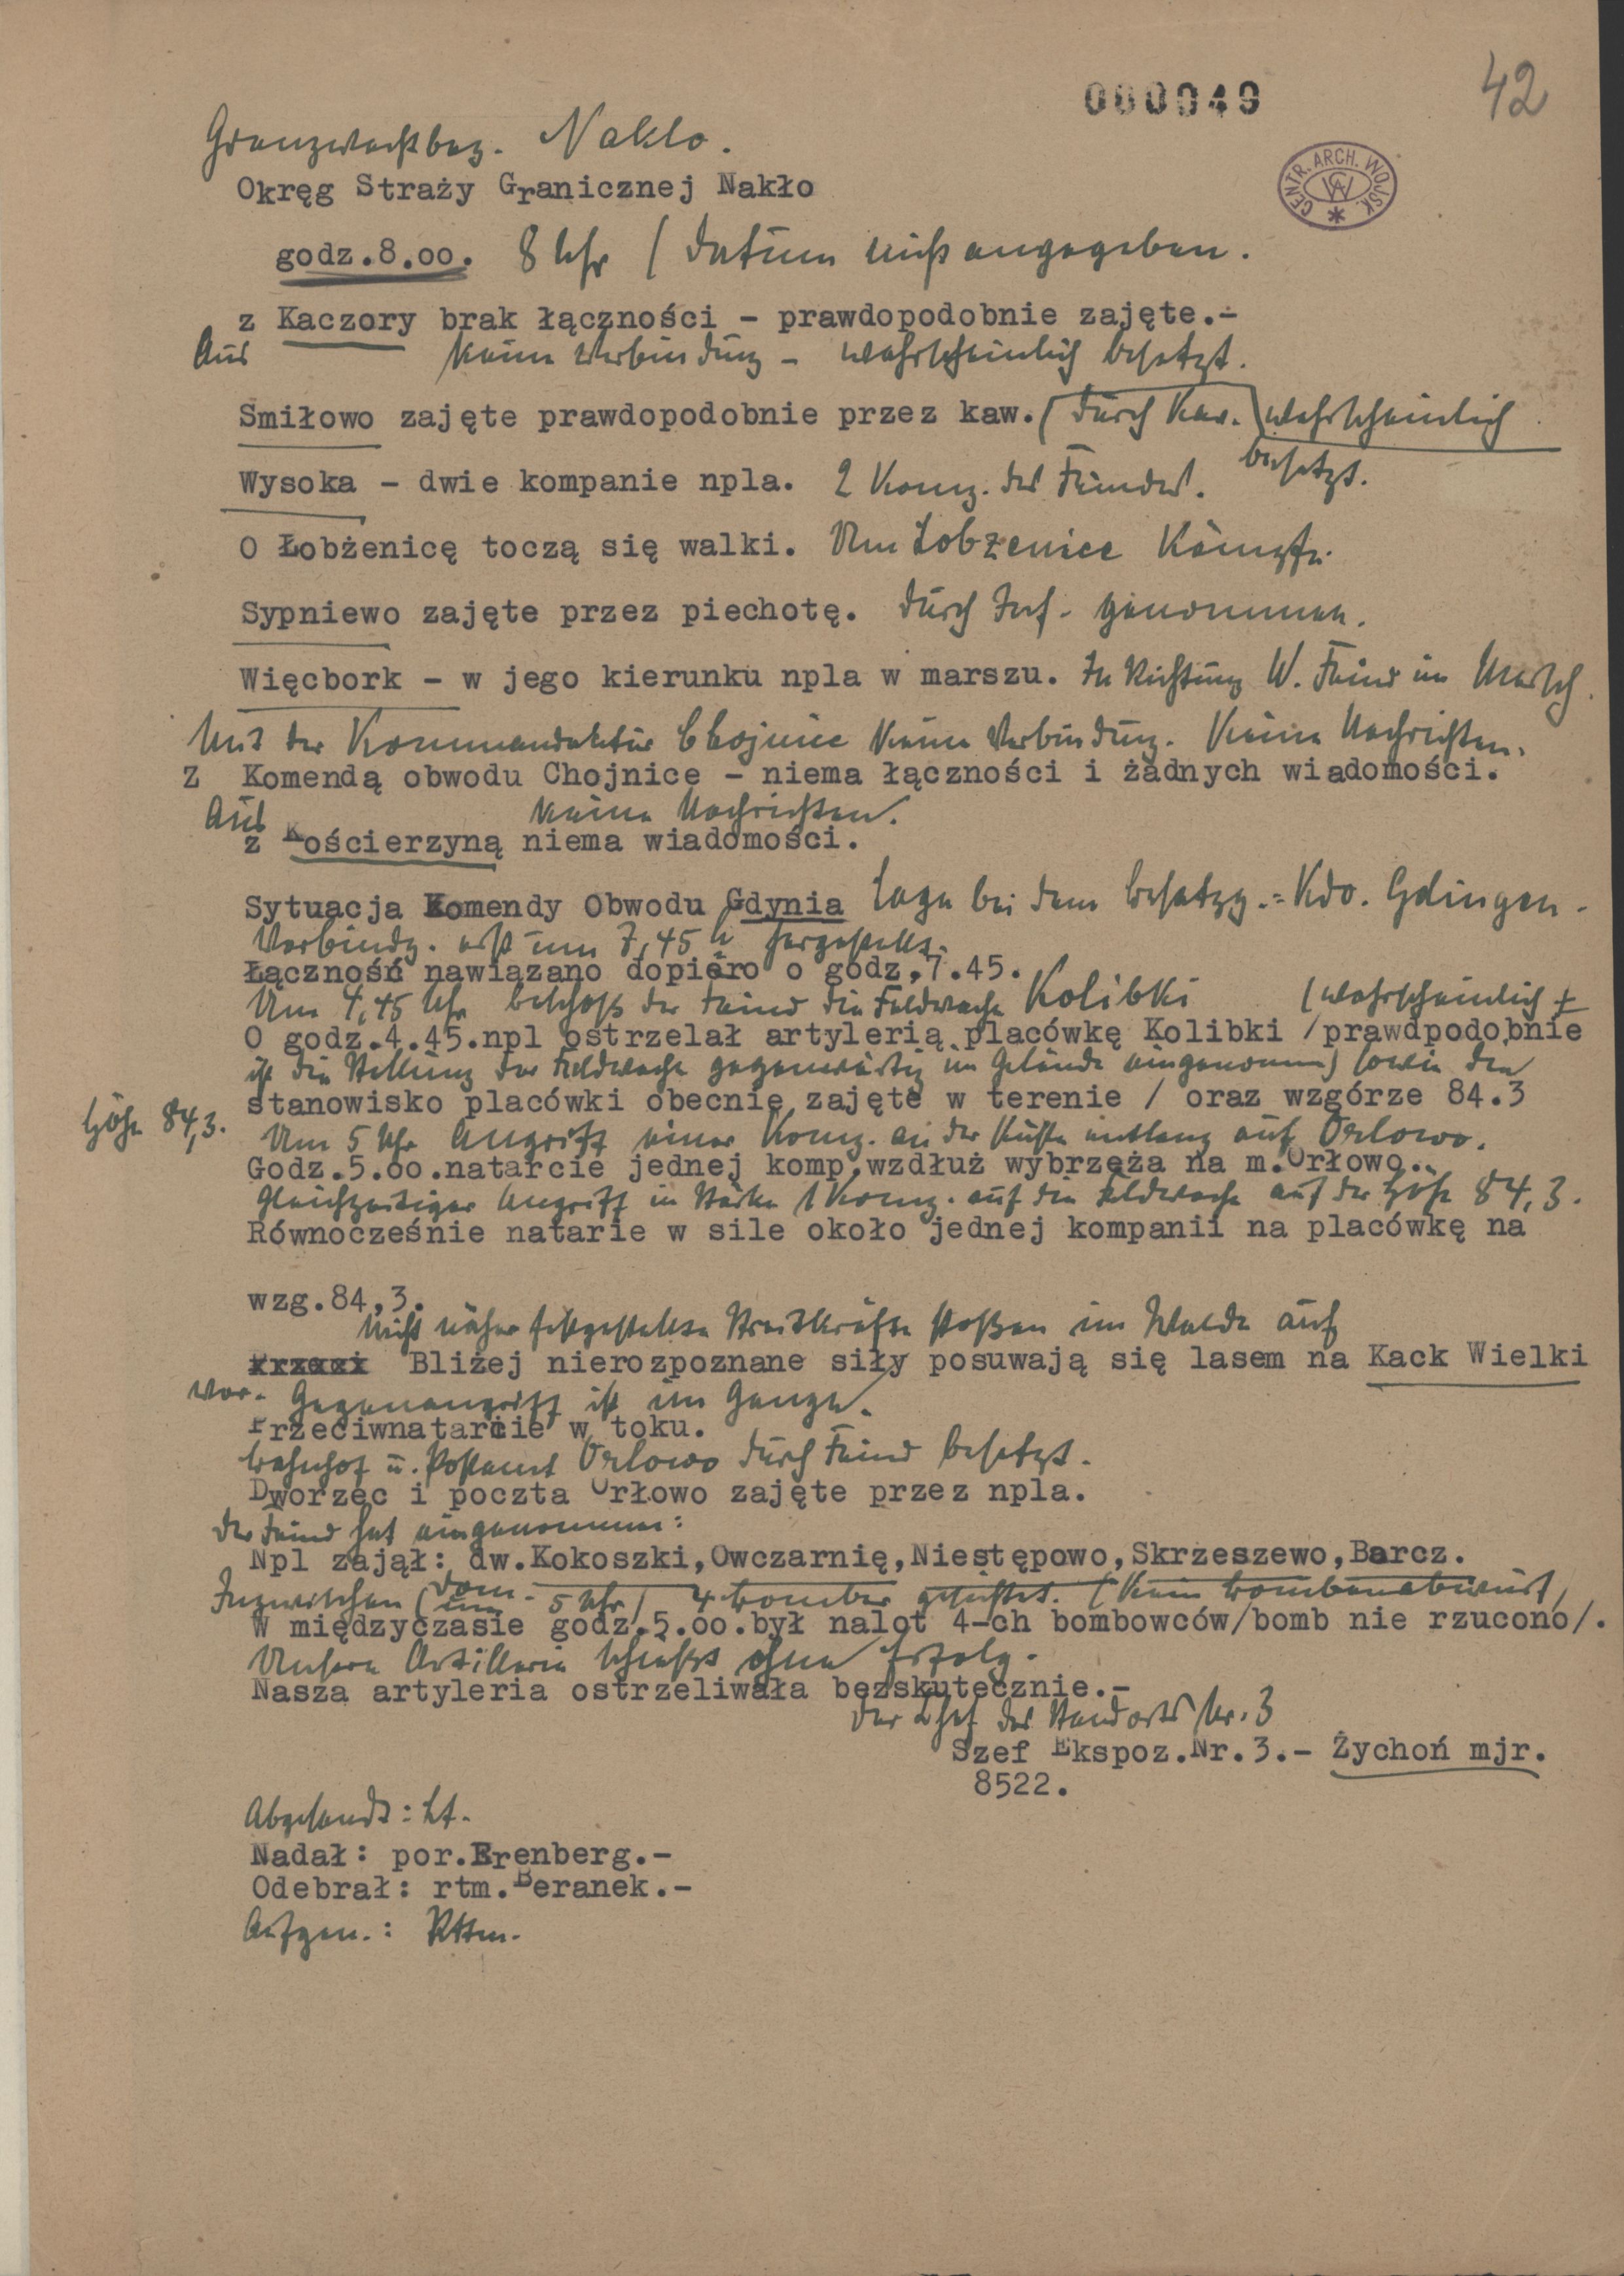 000049
42
CENTR. ARCH. WOJSK.
Grenzwachbez. Nakło.
Okręg Straży Granicznej Nakło
godz.8.oo. 8 Uhr / Datum nicht angegeben.
z Kaczory brak łączności - prawdopodobnie zajęte.-
Aus keine Verbindung - wahrscheinlich besetzt.
Smiłowo zajęte prawdopodobnie przez kaw. (durch Kav.) wahrscheinlich
besetzt.
Wysoka - dwie kompanie npla. 2 Komp. des Feindes.
O Łobżenicę toczą się walki. Um Lobzenice Kämpfe.
Sypniewo zajęte przez piechotę. durch Inf. genommen.
Więcbork - w jego kierunku npla w marszu. In Richtung W. Feind im Marsch.
Mit der Kommandantur Chojnice keine Verbindung. Keine Nachrichten.
Z Komendą obwodu Chojnice - niema łączności i żadnych wiadomości.
Aus keine Nachrichten.
z Kościerzyną niema wiadomości.
Sytuacja Komendy Obwodu Gdynia Lage bei dem Besatzg.-Kdo. Gdingen.
Verbindg. erst um 7,45 h hergestellt.
Łączność nawiązano dopiero o godz.7.45.
Um 4,45 Uhr beschoß der Feind die Feldwache Kolibki (wahrscheinlich
O godz.4.45.npl ostrzelał artylerią placówkę Kolibki /prawdpodobnie
ist die Stellung der Feldwache gegenwärtig im Gelände eingenommen) sowie den
stanowisko placówki obecnie zajęte w terenie / oraz wzgórze 84.3
Höhe 84,3.
Um 5 Uhr Angriff einer Komp. an der Küste entlang auf Orlowo.
Godz.5.oo.natarcie jednej komp.wzdłuż wybrzeża na m.Orłowo..
Gleichzeitiger Angriff in Stärke 1 Komp. auf die Feldwache auf der Höhe 84,3.
Równocześnie natarie w sile około jednej kompanii na placówkę na
wzg.84,3.
Nicht näher festgestellte Streitkräfte stoßen im Walde auf
Bliżej nierozpoznane siły posuwają się lasem na Kack Wielki
vor. Gegenangriff ist im Gange.
Przeciwnatarcie w toku.
Bahnhof u. Postamt Orlowo durch Feind besetzt.
Dworzec i poczta Orłowo zajęte przez npla.
Der Feind hat eingenommen:
Npl zajął: dw.Kokoszki,Owczarnię,Niestępowo,Skrzeszewo,Barcz.
Inzwischen (um 5 Uhr) 4 Bomber gesichtet. (Kein Bombenabwurf)
W międzyczasie godz.5.oo.był nalot 4-ch bombowców/bomb nie rzucono/.
Unsere Artillerie schießt ohne Erfolg.
Nasza artyleria ostrzeliwała bezskutecznie.-
Der Chef des Standorts Nr. 3
Szef Ekspoz.Nr.3.- Żychoń mjr.
8522.
Abgesandt: Lt.
Nadał: por.Erenberg.-
Odebrał: rtm.Beranek.-
Aufgen.: Rttm.